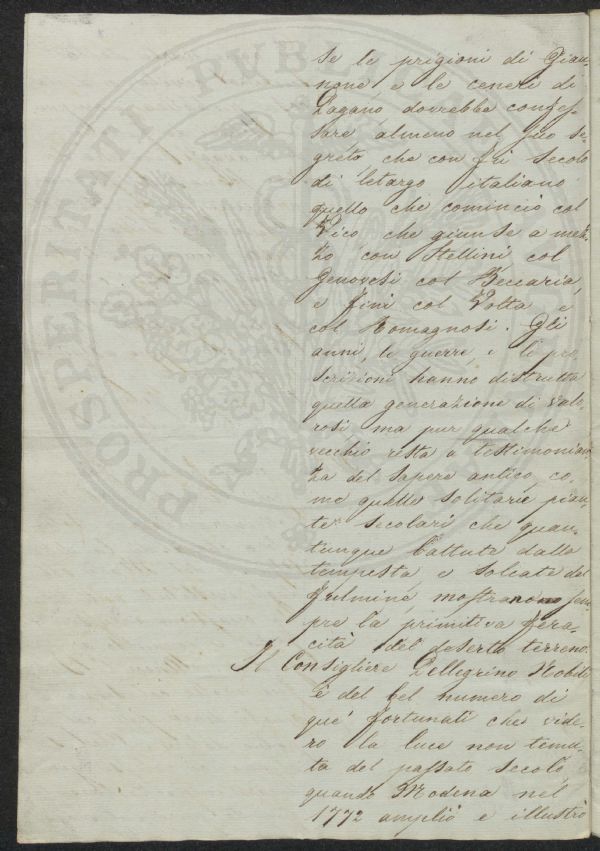 PROSPERITATI PVBLICAE
se le prigioni di Gian-
none e le ceneri di
Pagano dovrebbe confes-
sare almeno nel suo se-
greto che con fu secolo
di letargo italiano
quello che cominciò col
Vico che giunse a mez-
zo con Stellini col
Genovesi col Beccaria,
e finì col Volta e
col Romagnosi. Gli
anni, le guerre, e le pro-
scrizioni hanno distrutta
quella generazione di valo-
rosi ma pur qualche
vecchio resta a testimonian-
za del sapere antico, co-
me quelle solitarie pian-
te secolari che quan-
tunque battute dalla
tempesta e solcate dal
fulmine mostrano sem
pre la primitiva fera-
cità del deserto terreno.
Il Consigliere Pellegrino Nobili
è del bel numero di
que' fortunati che vide-
ro la luce non temu-
ta del passato secolo,
quando Modena nel
1772 ampliò e illustrò